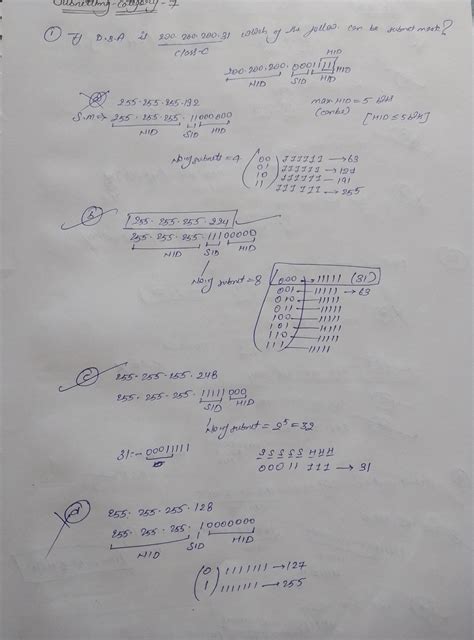 Subnetting - Category - 7
① If D.B.A is 200.200.200.31 which of the follow. can be subnet mask?
class-C
HID
200.200.200.00011111
NID SID HID
ⓐ 255.255.255.192
max HID = 5 bits
S.M ⇒ 255.255.255.11000000
(contd) [HID ≤ 5 bits]
NID SID HID
No. of subnets = 4
00 111111 → 63
01 111111 → 127
10 111111 → 191
11 111111 → 255
ⓑ 255.255.255.224
255.255.255.11100000
NID SID HID
No. of subnet = 8
000 → 11111 (31)
001 - 11111 → 63
010 - 11111
011 - 11111
100 - 11111
101 - 11111
110 - 11111
111 - 11111
ⓒ 255.255.255.248
255.255.255.11111000
SID HID
No. of subnet = 2⁵ = 32
31 = 00011111
S S S S S H H H
00011 111 → 31
ⓓ 255.255.255.128
255.255.255.10000000
NID SID HID
0 1111111 → 127
1 1111111 → 255